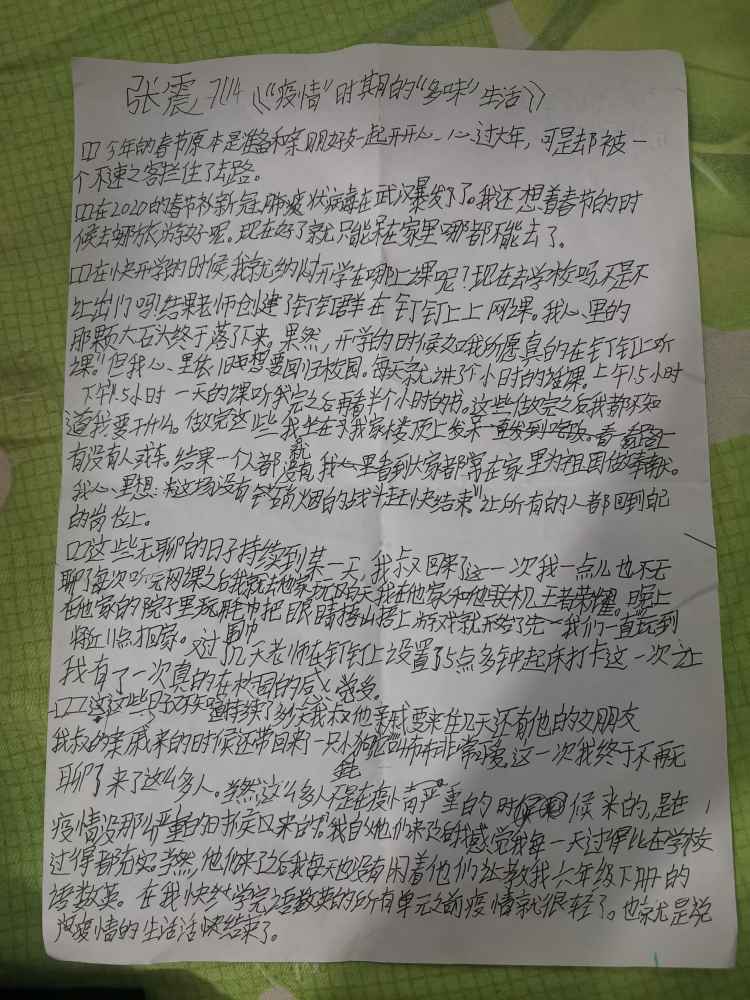 张震 7114 《“疫情”时期的“多味”生活》
今年的春节原本是准备和亲朋好友一起开开心心过大年,可是却被一
个不速之客拦住了去路。
在2020的春节被新冠肺疫状病毒在武汉暴发了。我还想着春节的时
候去哪旅游好呢。现在好了就只能呆在家里哪都不能去了。
在快开学的时候,我就纳闷开学在哪上课呢?现在去学校吗,不是不
让出门吗!结果老师创建了钉钉群在钉钉上上网课。我心里的
那颗大石头终于落了下来。果然,开学的时候如我所愿真的在钉钉上听
课。但我心里依旧想要回归校园。每天就讲了个小时的课。上午1.5小时
下午1.5小时一天的课听我完之后再看半个小时的书。这些做完之后我都不知
道我要干什么。做完这些我坐在我家楼顶上发呆一直发到吃饭。看看路上
有没有人或车。结果一个人都没有就我心里看到大家都宅在家里为祖国做奉献。
我心里想:“这场没有硝烟的战斗赶快结束”让所有的人都回到自己
的岗位上。
这些无聊的日子持续到某一天,我叔叉回来了这一次我一点儿也不无
聊了每次听完网课之后我就去他家玩每天我在他家和他联机王者荣耀。晚上
在他家的院子里玩用巾把眼睛捂上游戏就开始了先我们一直玩到
将近11点扣家。过了几天老师在钉钉上设置了5点多钟起床打卡这一次让
我有了一次真的在校园的感觉。
这些日子持续了多久我叔他亲戚要来住几天还有他的女朋友
我叔的亲戚来的时候还带回来了一只小狗它叫布布非常可爱,这一次我终于不再无
聊了来了这么多人。当然这么多人不是在疫情严重的时候来的,是在
疫情没那么严重的时候又来的。我自从他们来了后我感觉我每一天过得比在学校
过得都充实。当然,他们来了之后我每天也没有闲着他们让教我六年级下册的
语数英。在我快然学完语数英的所有单元之前疫情就很轻了。也就是说
没疫情的生活活快结束了。